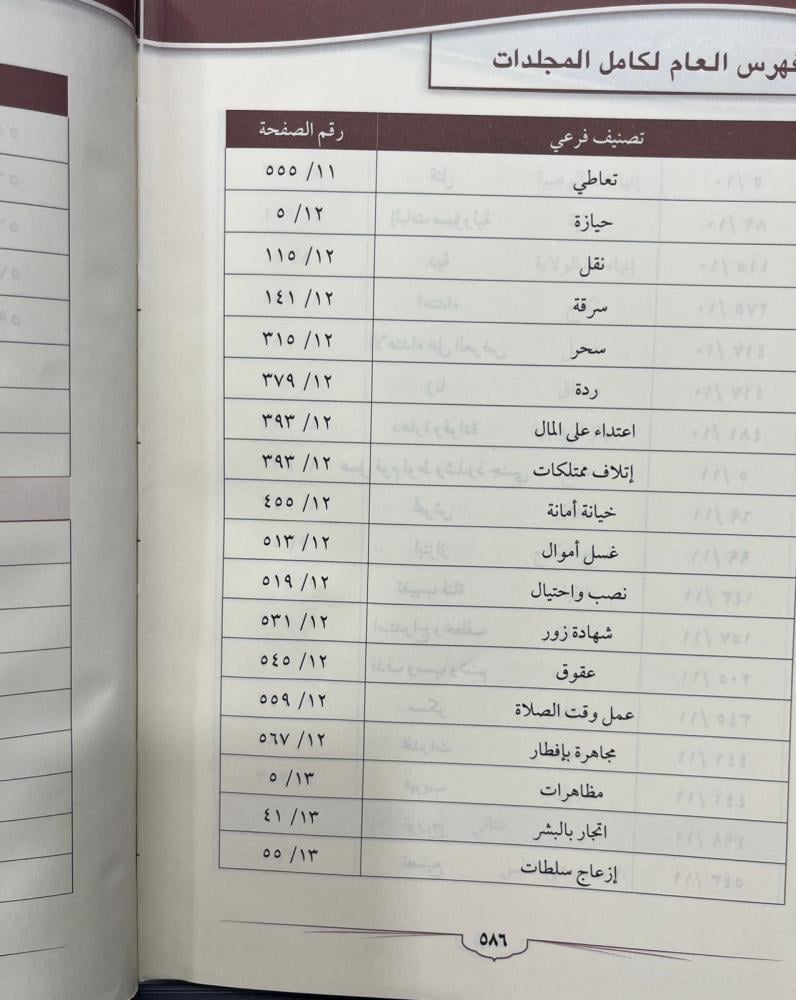 فهرس العام لكامل المجلدات
تصنيف فرعي رقم الصفحة
تعاطي ١١/ ٥٥٥
حيازة ١٢/ ٥
نقل ١٢/ ١١٥
سرقة ١٢/ ١٤١
سحر ١٢/ ٣١٥
ردة ١٢/ ٣٧٩
اعتداء على المال ١٢/ ٣٩٣
إتلاف ممتلكات ١٢/ ٣٩٣
خيانة أمانة ١٢/ ٤٥٥
غسل أموال ١٢/ ٥١٣
نصب واحتيال ١٢/ ٥١٩
شهادة زور ١٢/ ٥٣١
عقوق ١٢/ ٥٤٥
عمل وقت الصلاة ١٢/ ٥٥٩
مجاهرة بإفطار ١٢/ ٥٦٧
مظاهرات ١٣/ ٥
اتجار بالبشر ١٣/ ٤١
إزعاج سلطات ١٣/ ٥٥
٥٨٦